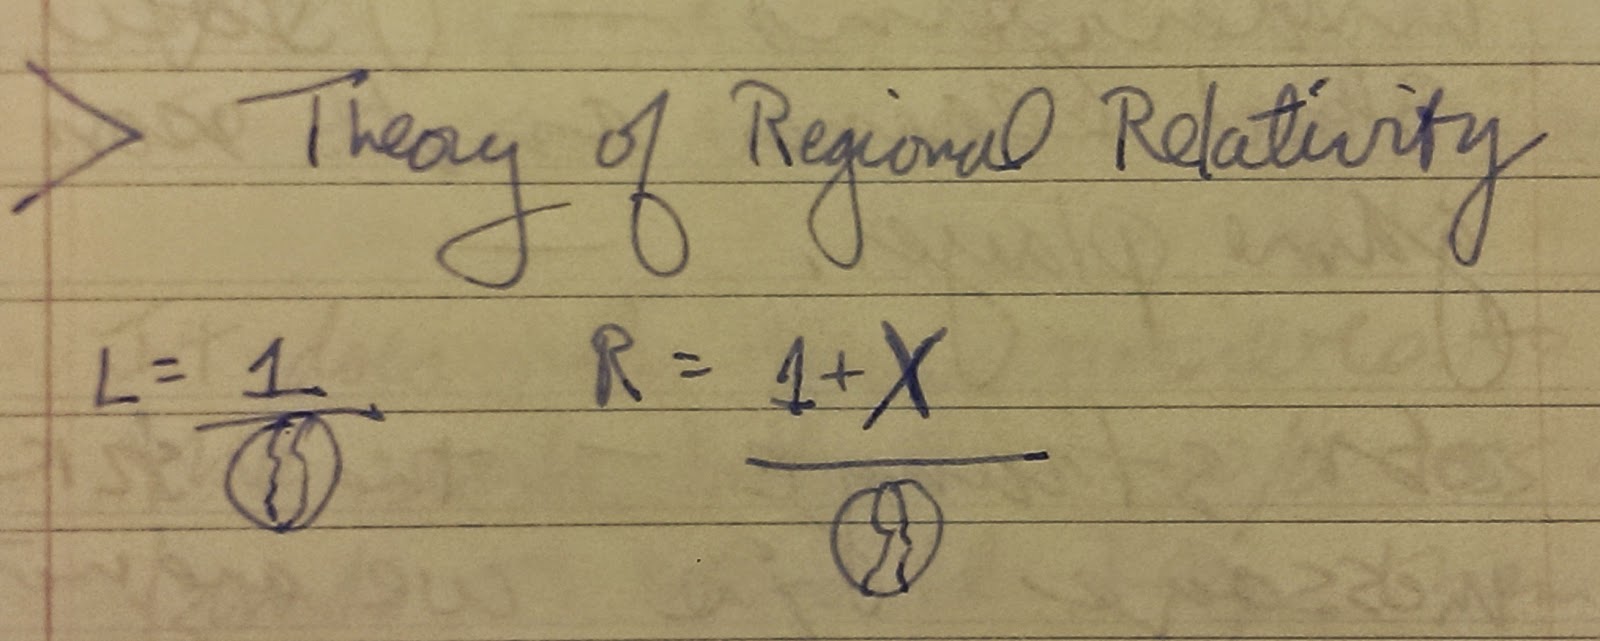 > Theory of Regional Relativity
L = 1 R = 1 + X